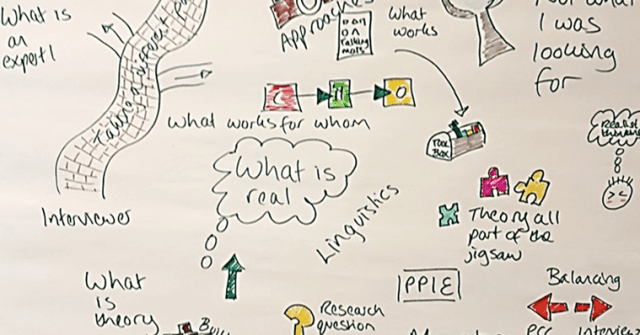 What is
an
expert!
taking a different
Approaches
on
Talking
mats
What
works
I was
looking
for
C
M
O
What works for whom
TOOL
BOX
Realist
What is
real
Interviewer
Linguistics
Theory all
part of the
jigsaw
What
is
theory
PPIE
Research
question
Balancing